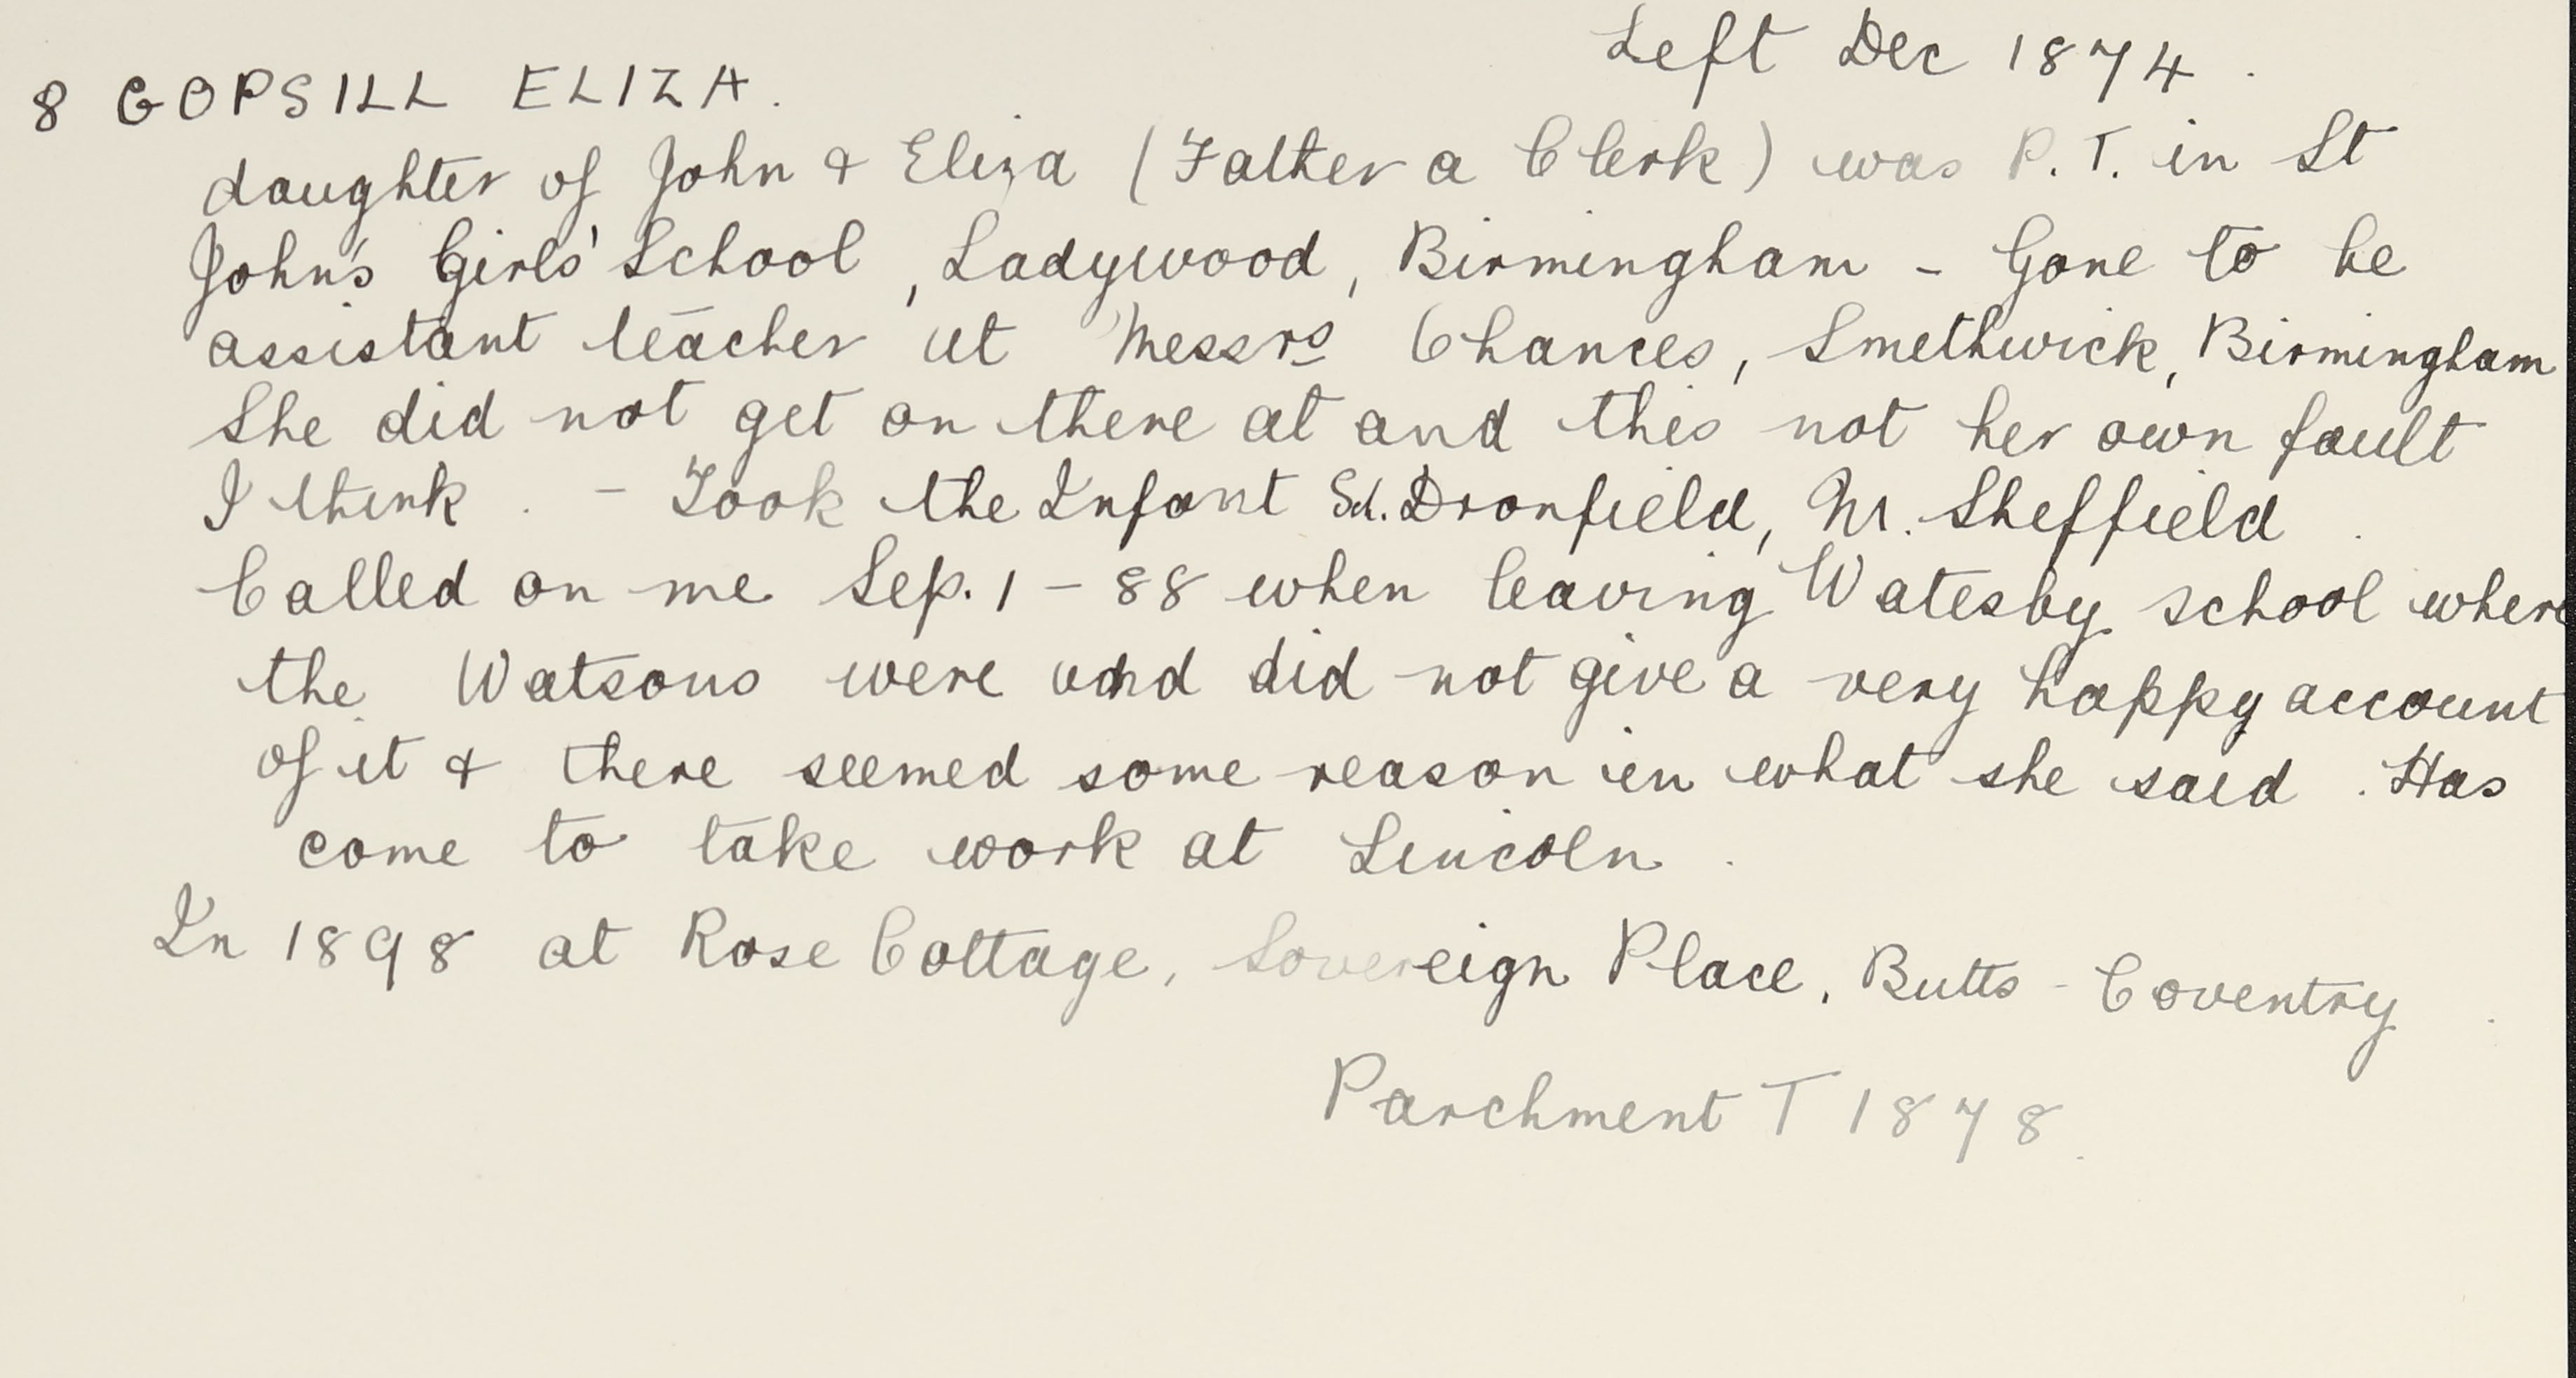 Left Dec 1874.
8 GOPSILL ELIZA.
daughter of John & Eliza (Father a Clerk) was P. T. in St
John's Girls' School, Ladywood, Birmingham - Gone to be
assistant teacher at Messrs Chances, Smethwick, Birmingham
She did not get on there at and this not her own fault
I think. - Took the Infant Sch. Dronfield, Nr. Sheffield.
Called on me Sep. 1 - 88 when leaving Watesby school where
the Watsons were and did not give a very happy account
of it & there seemed some reason in what she said. Has
come to take work at Lincoln.
In 1898 at Rose Cottage, Sovereign Place, Butts - Coventry.
Parchment T 1878.